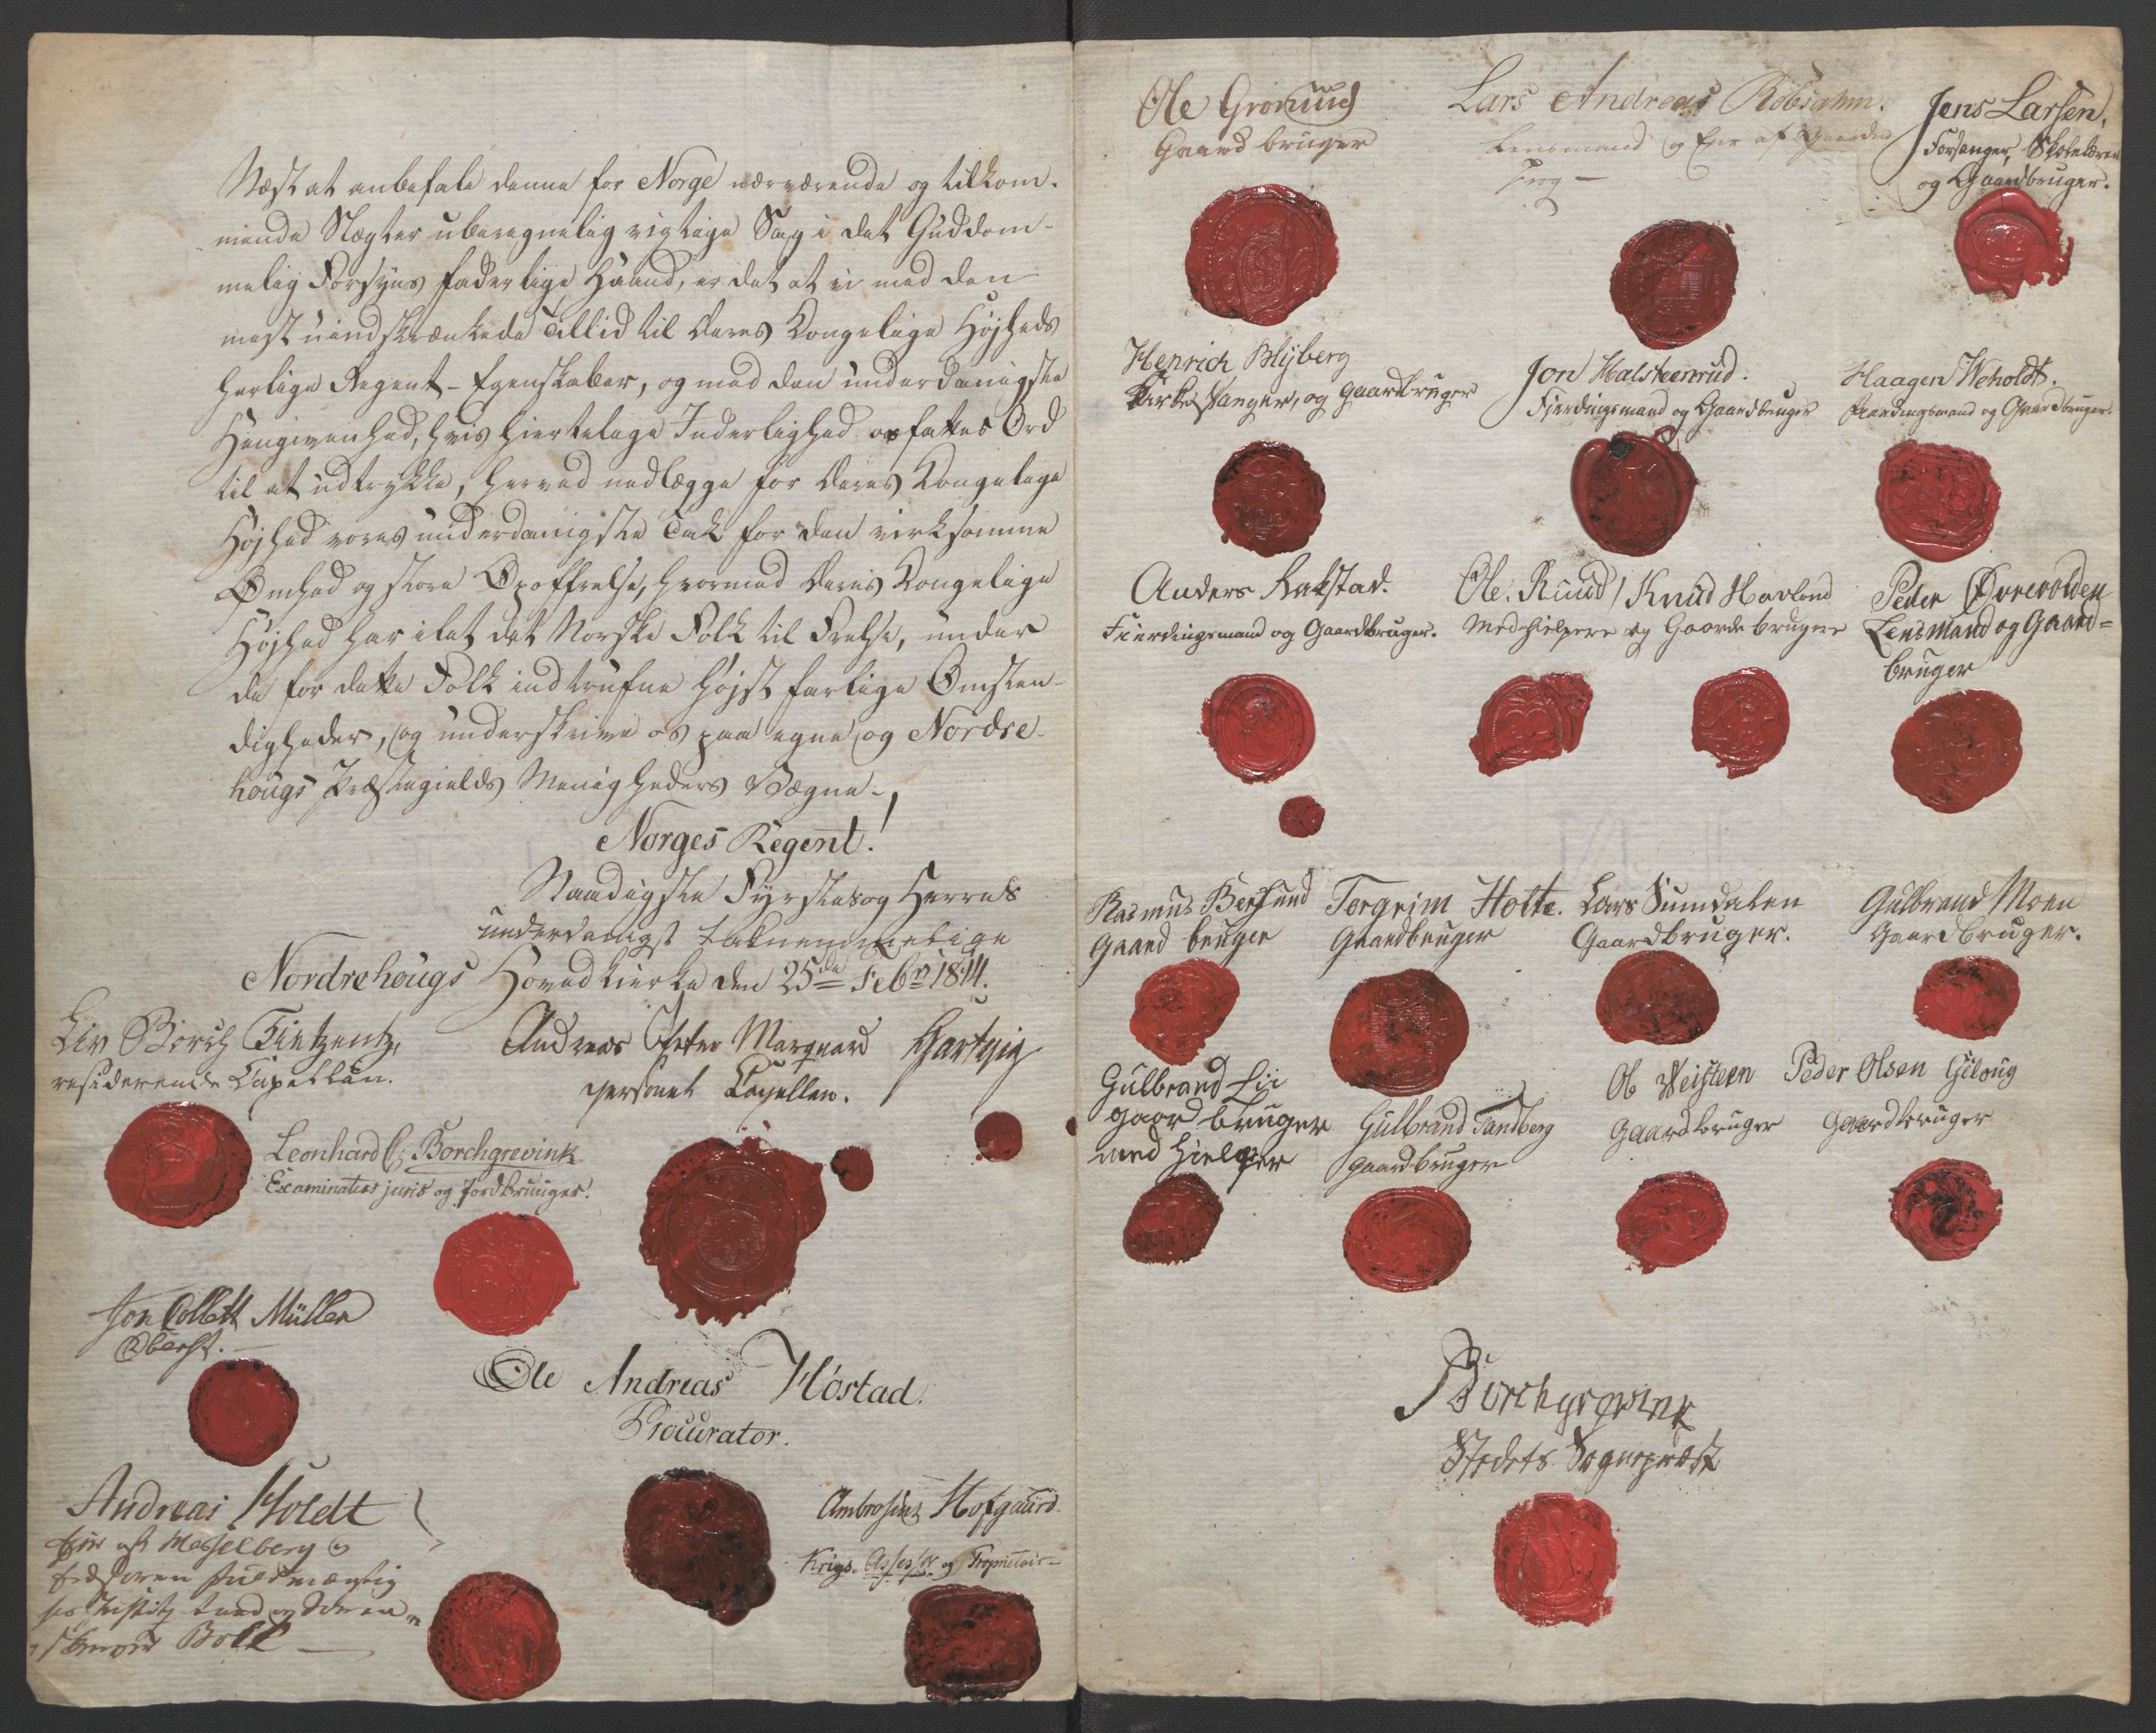 Næst at anbefale denne for Norge nærværende og tilkom-
mende Slægter uberegnelig vigtige Sag i det Guddom-
melig Forsyns faderlige Haand, er det at vi med den
mest uindskrænkede Tillid til Deres Kongelige Højheds
herlige Regent-Egenskaber, og med den underdanigste
Hengivenhed, hvis hiertelige Inderlighed os fattes Ord
til at udtrykke, herved nedlægge for Deres Kongelige
Højhed vores underdanigste Tak for den virksomme
Ømhed og store Opoffrelse, hvormed Deres Kongelige
Højhed har ilet det Norske Folk til Frelse, under
de for dette Folk indtrufne højst farlige Omsten-
digheder, og underskrive os paa egne og Nordre-
hougs Præstegields Menigheders Vægne.,
Norges Regent!
Naadigste Fyrstes og Herres
underdanigst taknemmelige
Nordrehougs Hovedkierke den 25de Febr 1814.
Liv Borch Tintzentz,
residerende Capellan.
Andreas Peter Marquard Hartvig
personel Capellan.
Leonhard C. Borchgrevink
Examinatus juris og Jordbruuger.
Jon Collett Müller
Oberst.
Ole Andreas Hòstad.
Procurator.
Andreas Holdt
Ejer af Messelberg og
Ambrosius Hofgaard
Krigs-Assessor og Proprietair
Ole Gromund
Gaard bruger
Lars Andreas Robsahm.
Lensmand og Ejer af Gaarden
Jens Larsen,
Forsanger, Skolelærer
og Gaardbruger.
Henrich Blyberg
Kirke Sanger, og gaardbruger
Jon Halsteenrud.
Fjerdingsmand og Gaardbruger
Haagen Weholdt.
Fiærdingsmand og Gaardbruger.
Anders Rakstad.
Fierdingsmand og Gaardbruger.
Ole Ruud / Knud Hovland
Medhielpere og Gaardbrugere
Peder Øvrevolden
Lensmand og Gaard=
bruger
Rasmus Berhund
Gaard bruger
Torgrim Holte.
Gaardbruger
Lars Sundalen
Gaardbruger.
Gulbrand Moen
Gaardbruger.
Gulbrand Lii
gaard bruger
med hielper
Gulbrand Tandberg
gaardbruger
Ole Veisteen
gaardbruger
Peder Olsen Giloug
gaardbruger
Borchgrevink
Stedets Sognepræst